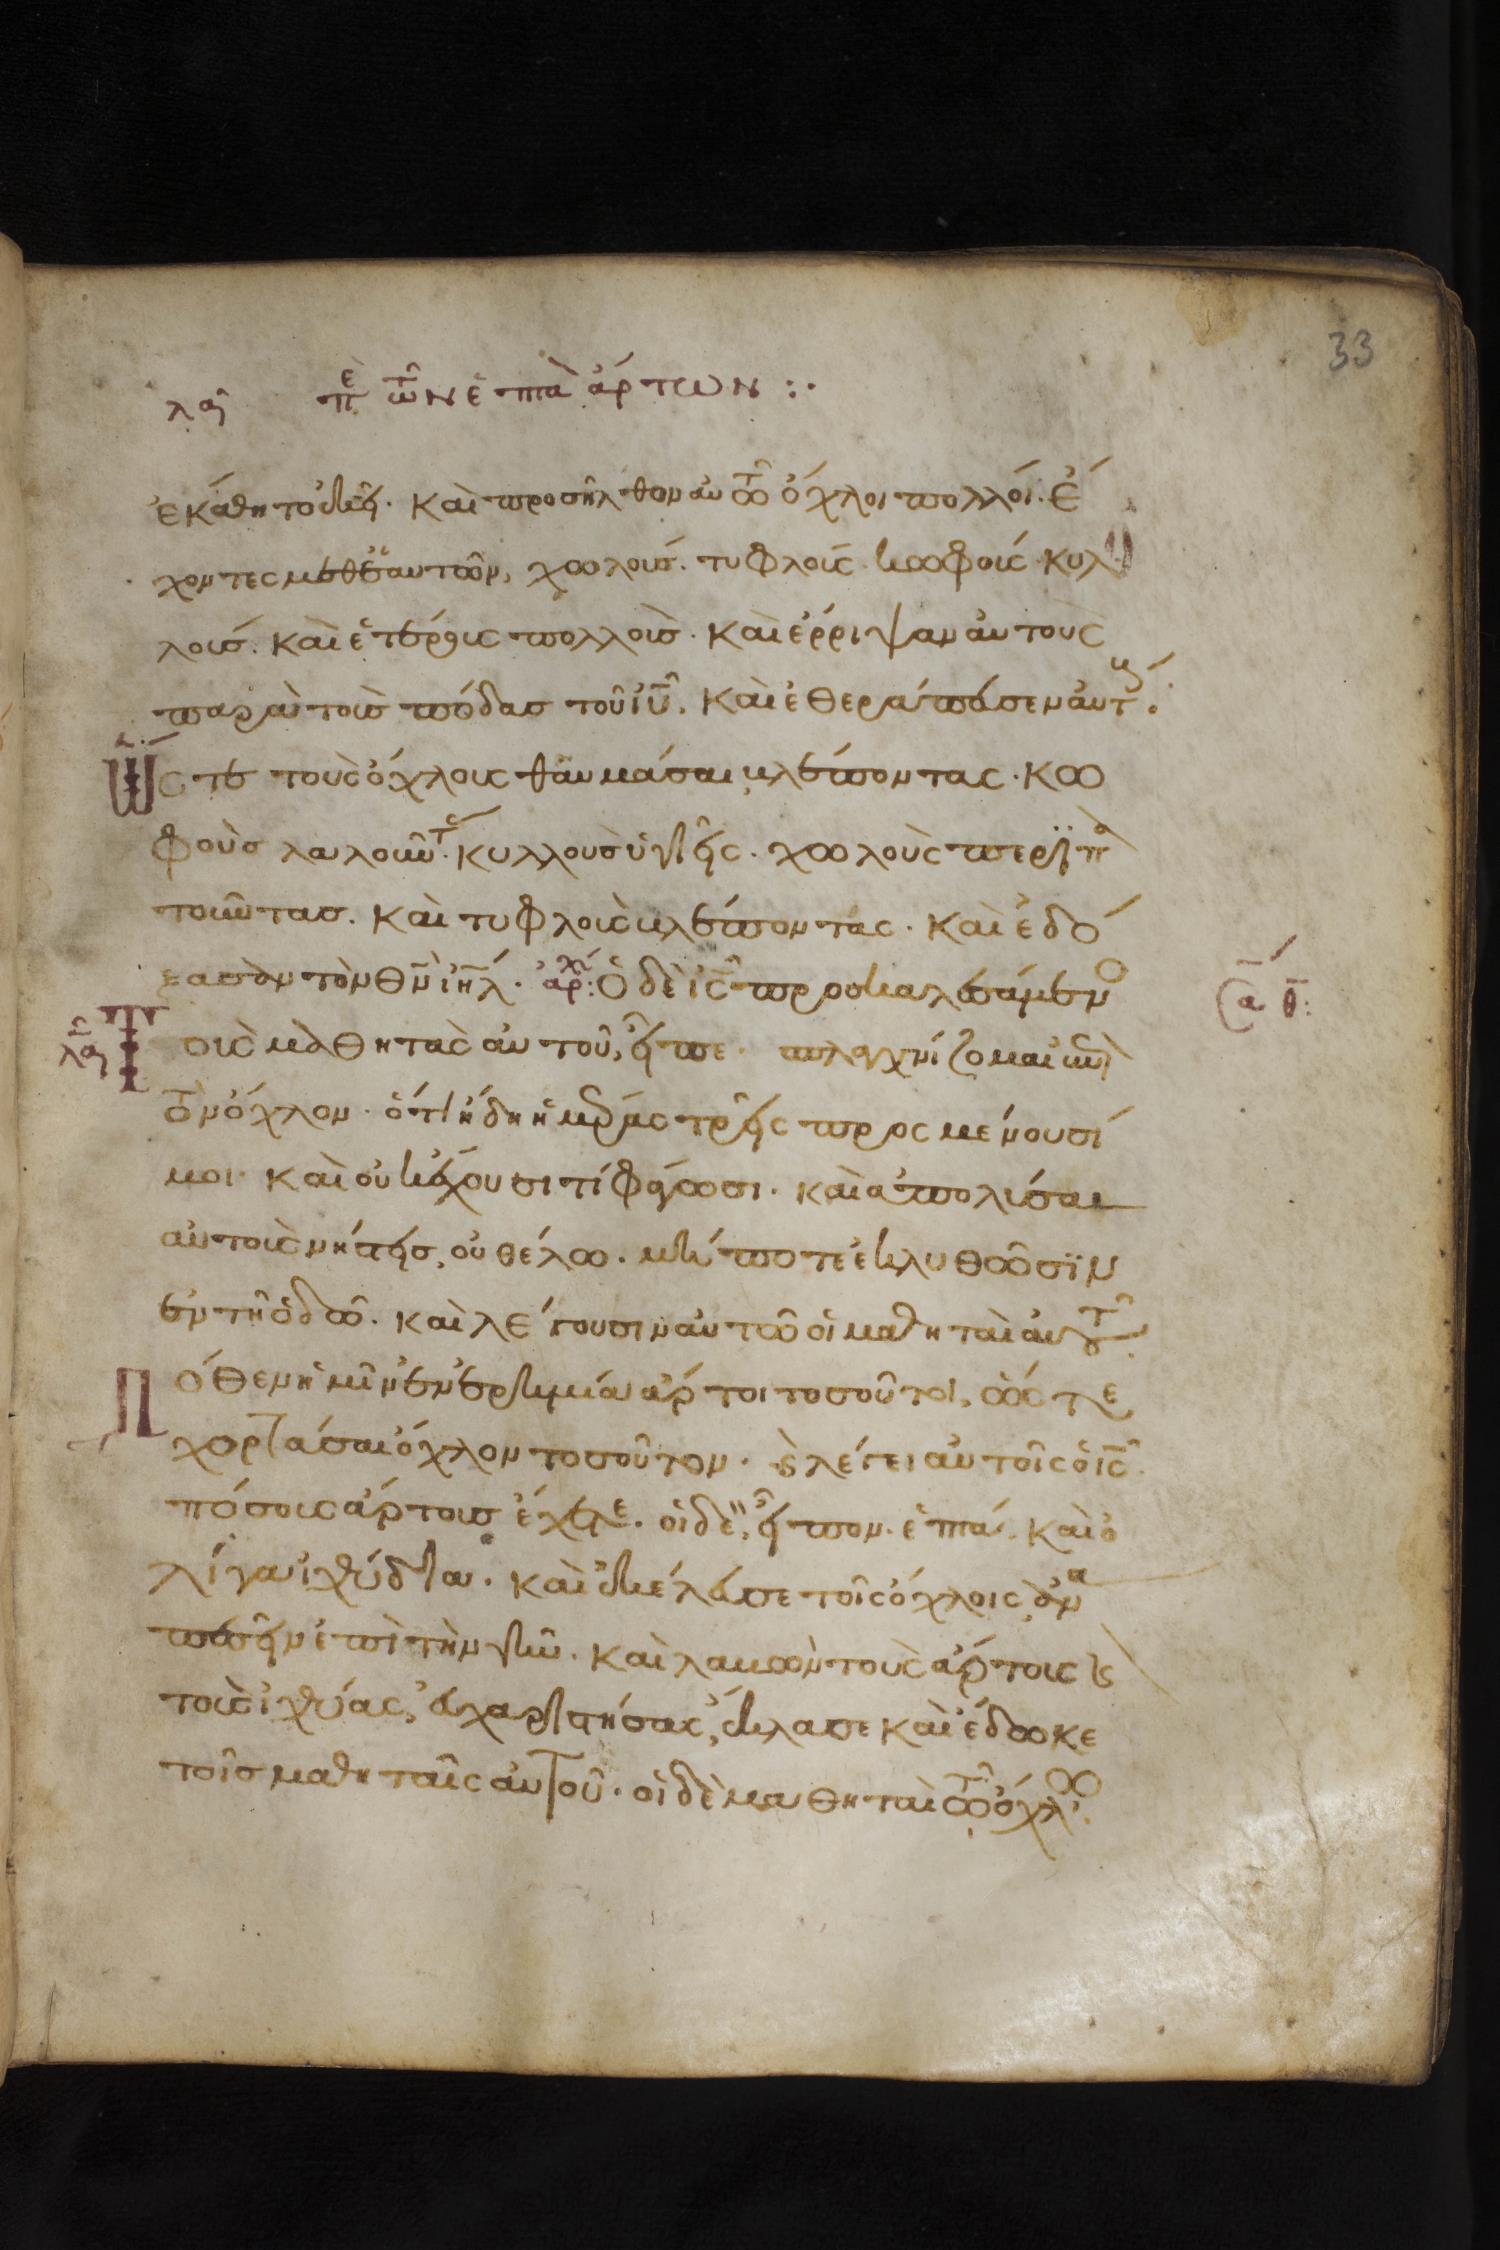 33
λδ πε τῶν ἑπτὰ ἄρτων :·
ἐκάθητο ἐκεῖ. καὶ προσῆλθον αὐτῶ ὄχλοι πολλοί. ἔ
χοντες μεθ ἑαυτῶν, χωλούς. τυφλούς. κωφούς κυλ
λούς. καὶ ἑτέρους πολλούς. καὶ ἔρριψαν αὐτοὺς
παρὰ τοὺς πόδας τοῦ ιυ. καὶ ἐθεράπευσεν αὐτούς.
Ὥστε τοὺς ὄχλους θαυμάσαι βλέποντας. κω
φοὺς λαλοῦντ. κυλλοὺς ὑγιεῖς. χωλοὺς περιπα
τοῦντας. καὶ τυφλοὺς βλέποντας. καὶ ἐδό
ξασαν τὸν θν ιηλ. ἀρχ: Ὁ δὲ ις προσκαλεσάμενο
τοὺς μαθητὰς αὐτοῦ, εἶπε. σπλαγχνίζομαι ἐπὶ
τὸν ὄχλον. ὅτι ἤδη ἡμέρας τρεῖς προσμένουσί
μοι. καὶ οὐκ ἔχουσι τί φάγωσι. καὶ ἀπολύσαι
αὐτοὺς νήστεις, οὐ θέλω. μήποτε ἐκλυθῶσϊν
ἐν τῆ ὁδῶ. καὶ λέγουσιν αὐτῶ οἱ μαθηταὶ αὐτοῦ.
Πόθεν ἡμῖν ἐν ἐρημία ἄρτοι τοσοῦτοι, ὥστε
χορτάσαι ὄχλον τοσοῦτον. κ λέγει αὐτοῖς ὁ ις.
πόσους ἄρτους ἔχετε. οἱ δὲ, εἶπον. ἑπτά. καὶ ὀ
λίγα ἰχθύδια. καὶ ἐκέλευσε τοῖς ὄχλοις, ἀνα
πεσεῖν ἐπὶ τὴν γῆν. καὶ λαβὼν τοὺς ἄρτους κ
τοὺς ἰχθύας, εὐχαριστήσας, ἔκλασε καὶ ἔδωκε
τοῖς μαθηταῖς αὐτοῦ. οἱ δὲ μαθηταὶ τῶ ὄχλω.